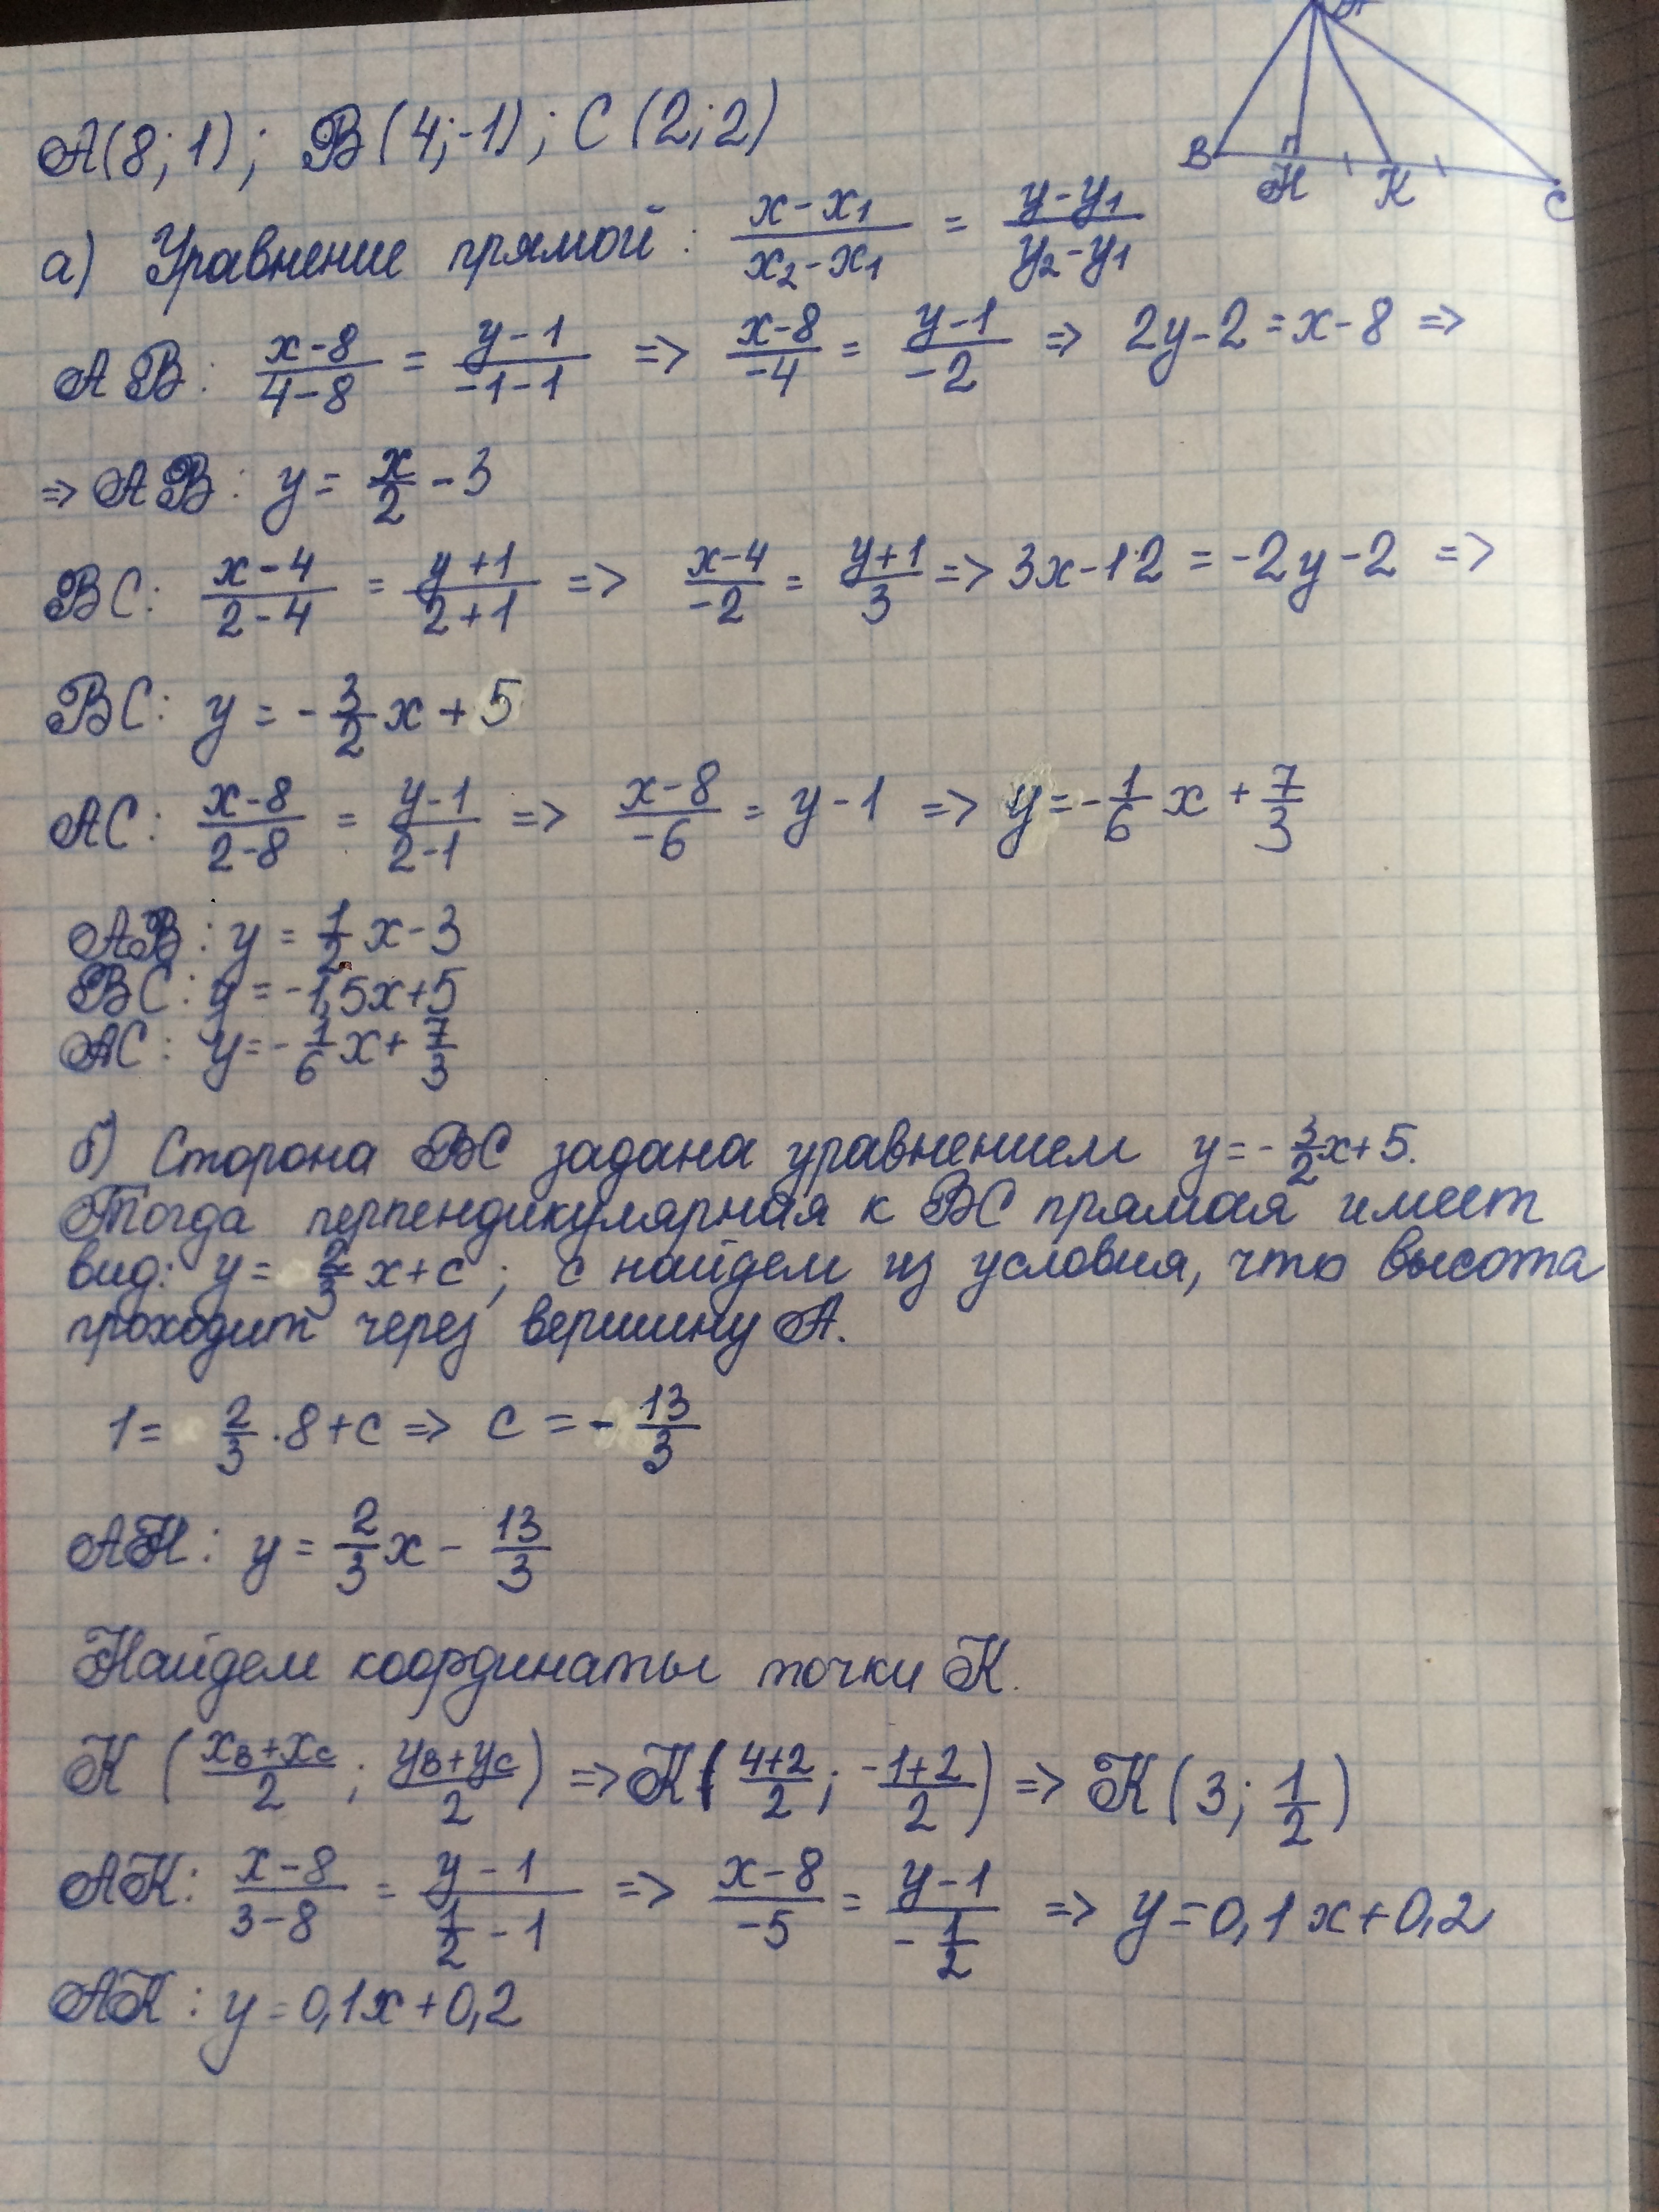 A
B H K C
A(8;1); B(4;-1); C(2;2)
а) Уравнение прямой: (x-x₁)/(x₂-x₁) = (y-y₁)/(y₂-y₁)
AB: (x-8)/(4-8) = (y-1)/(-1-1) => (x-8)/(-4) = (y-1)/(-2) => 2y-2=x-8 =>
=> AB: y = x/2 - 3
BC: (x-4)/(2-4) = (y+1)/(2+1) => (x-4)/(-2) = (y+1)/3 => 3x-12 = -2y-2 =>
BC: y = -3/2 x + 5
AC: (x-8)/(2-8) = (y-1)/(2-1) => (x-8)/(-6) = y-1 => y = -1/6 x + 7/3
AB: y = 1/2 x - 3
BC: y = -1,5x+5
AC: y = -1/6 x + 7/3
б) Сторона BC задана уравнением y = -3/2 x + 5.
Тогда перпендикулярная к BC прямая имеет
вид: y = 2/3 x + c; c найдем из условия, что высота
проходит через вершину A.
1 = 2/3 · 8 + c => c = -13/3
AH: y = 2/3 x - 13/3
Найдем координаты точки K.
K ((x_B+x_C)/2; (y_B+y_C)/2) => K((4+2)/2; (-1+2)/2) => K(3; 1/2)
AK: (x-8)/(3-8) = (y-1)/(1/2-1) => (x-8)/(-5) = (y-1)/(-1/2) => y=0,1x+0,2
AK: y=0,1x+0,2